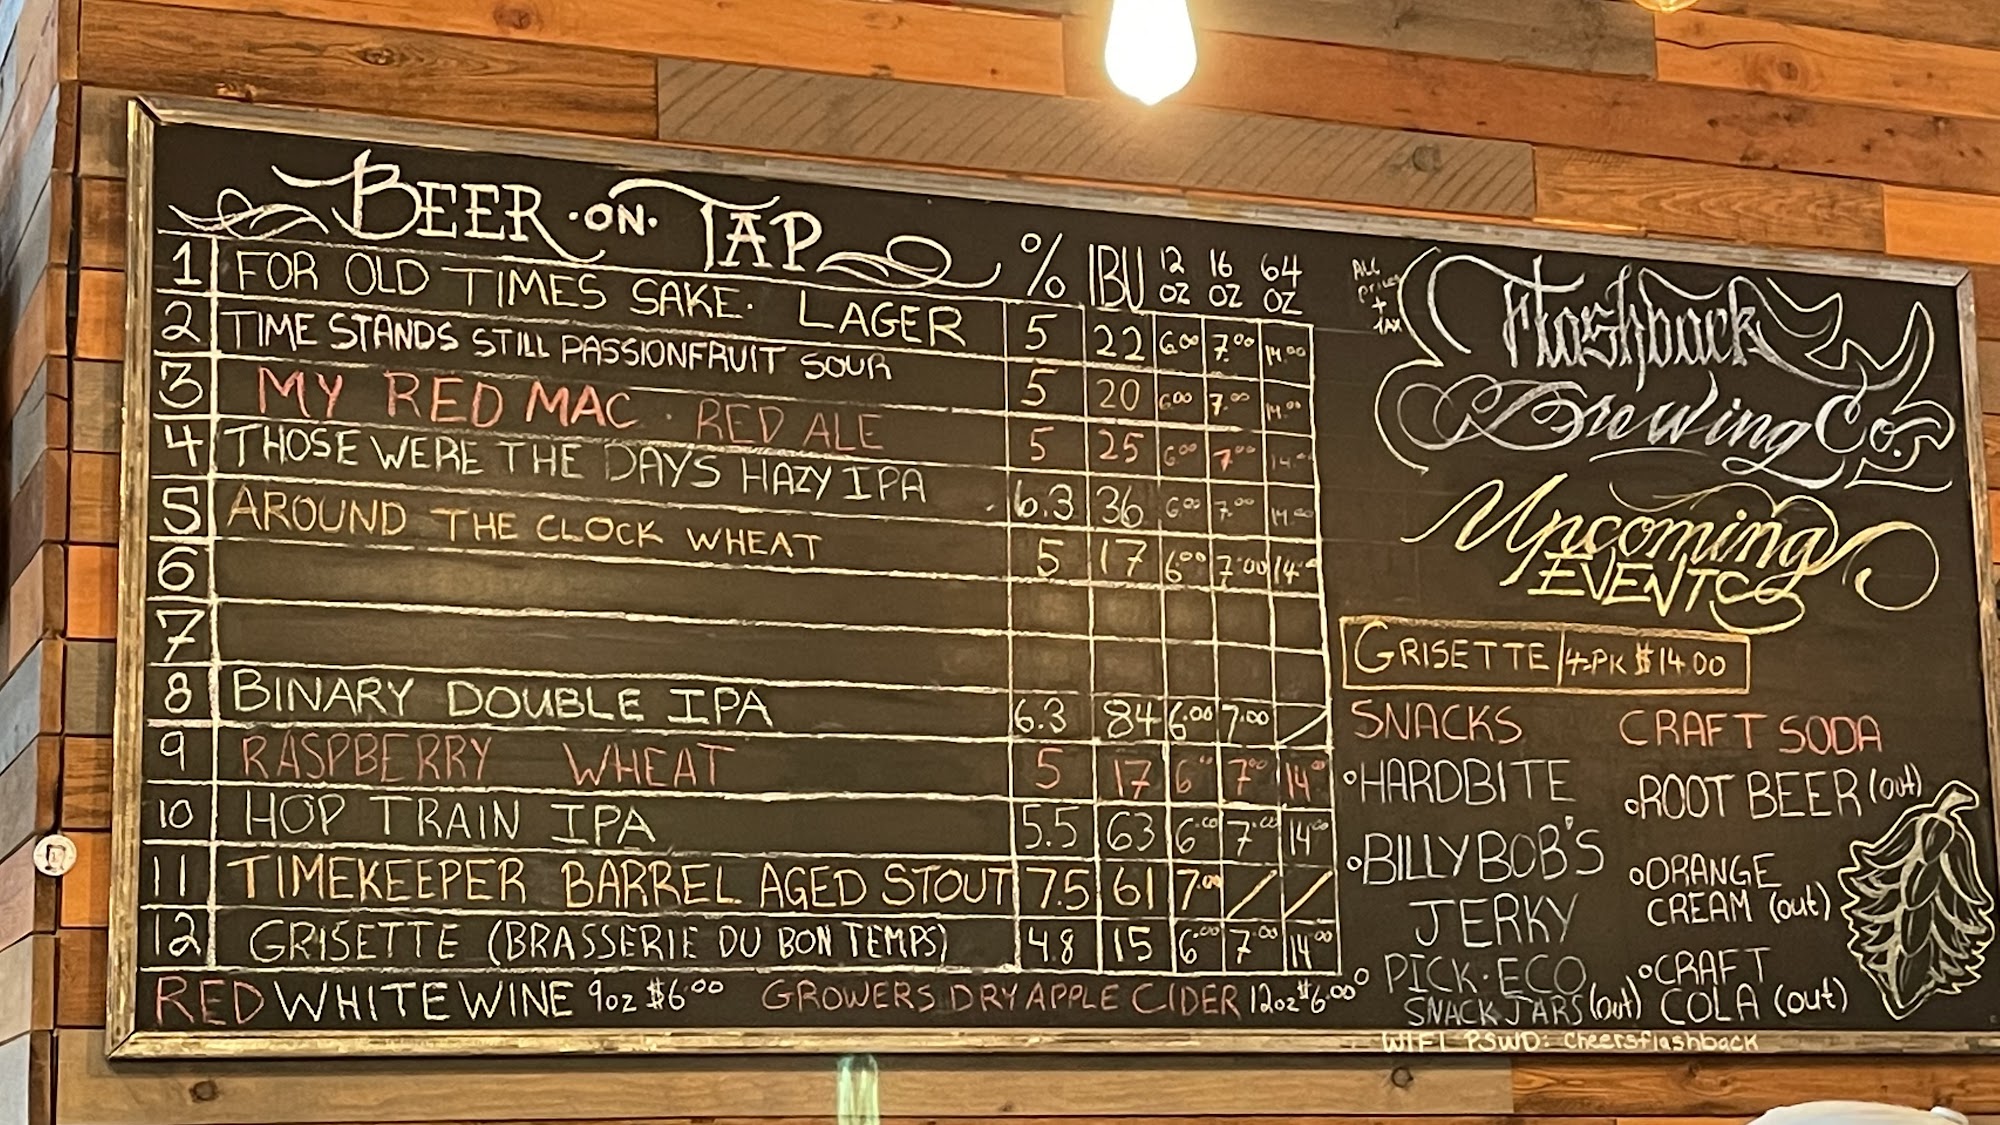 BEER ·ON· TAP % IBU 12 OZ 16 OZ 64 OZ
1 FOR OLD TIMES SAKE· LAGER 5 22 6.00 7.00 14.00
2 TIME STANDS STILL PASSIONFRUIT SOUR 5 20 6.00 7.00 14.00
3 MY RED MAC · RED ALE 5 25 6.00 7.00 14.00
4 THOSE WERE THE DAYS HAZY IPA 6.3 36 6.00 7.00 14.00
5 AROUND THE CLOCK WHEAT 5 17 6.00 7.00 14.00
6
7
8 BINARY DOUBLE IPA 6.3 84 6.00 7.00 /
9 RASPBERRY WHEAT 5 17 6.00 7.00 14.00
10 HOP TRAIN IPA 5.5 63 6.00 7.00 14.00
11 TIMEKEEPER BARREL AGED STOUT 7.5 61 7.00 / /
12 GRISETTE (BRASSERIE DU BON TEMPS) 4.8 15 6.00 7.00 14.00
RED WHITE WINE 9oz $6.00 GROWERS DRY APPLE CIDER 12oz $6.00
ALL
prices
+
TAX
Flashback
Brewing Co.
Upcoming
EVENTS
GRISETTE | 4-PK $14.00
SNACKS
° HARDBITE
° BILLYBOB'S
JERKY
° PICK·ECO
SNACK JARS (out)
CRAFT SODA
° ROOT BEER (out)
° ORANGE
CREAM (out)
° CRAFT
COLA (out)
WIFI PSWD: cheersflashback